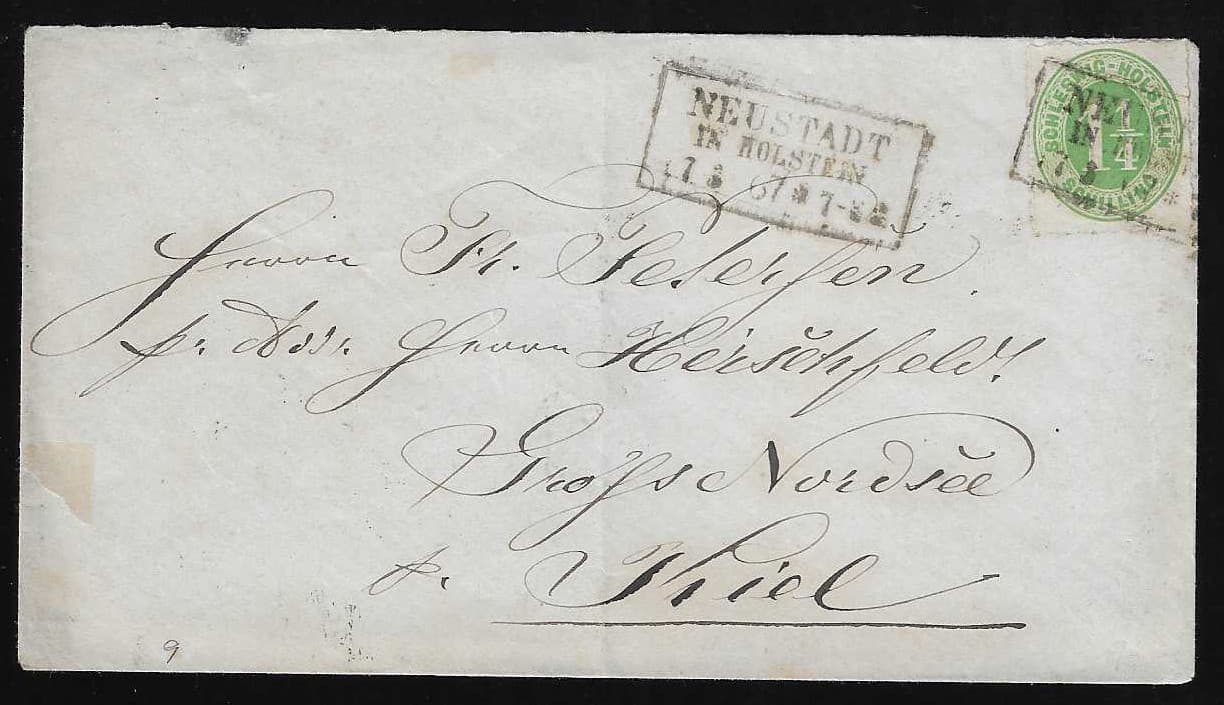 NEUSTADT
IN HOLSTEIN
7 3 67 * 7-8
SCHLESWIG-HOLSTEIN
1 1/4
SCHILLING
NEU
IN
7 3
Herrn Fr. Petersen.
pr. Adr. Herrn Hirschfeld.
Gross Nordsee
p. Kiel
9